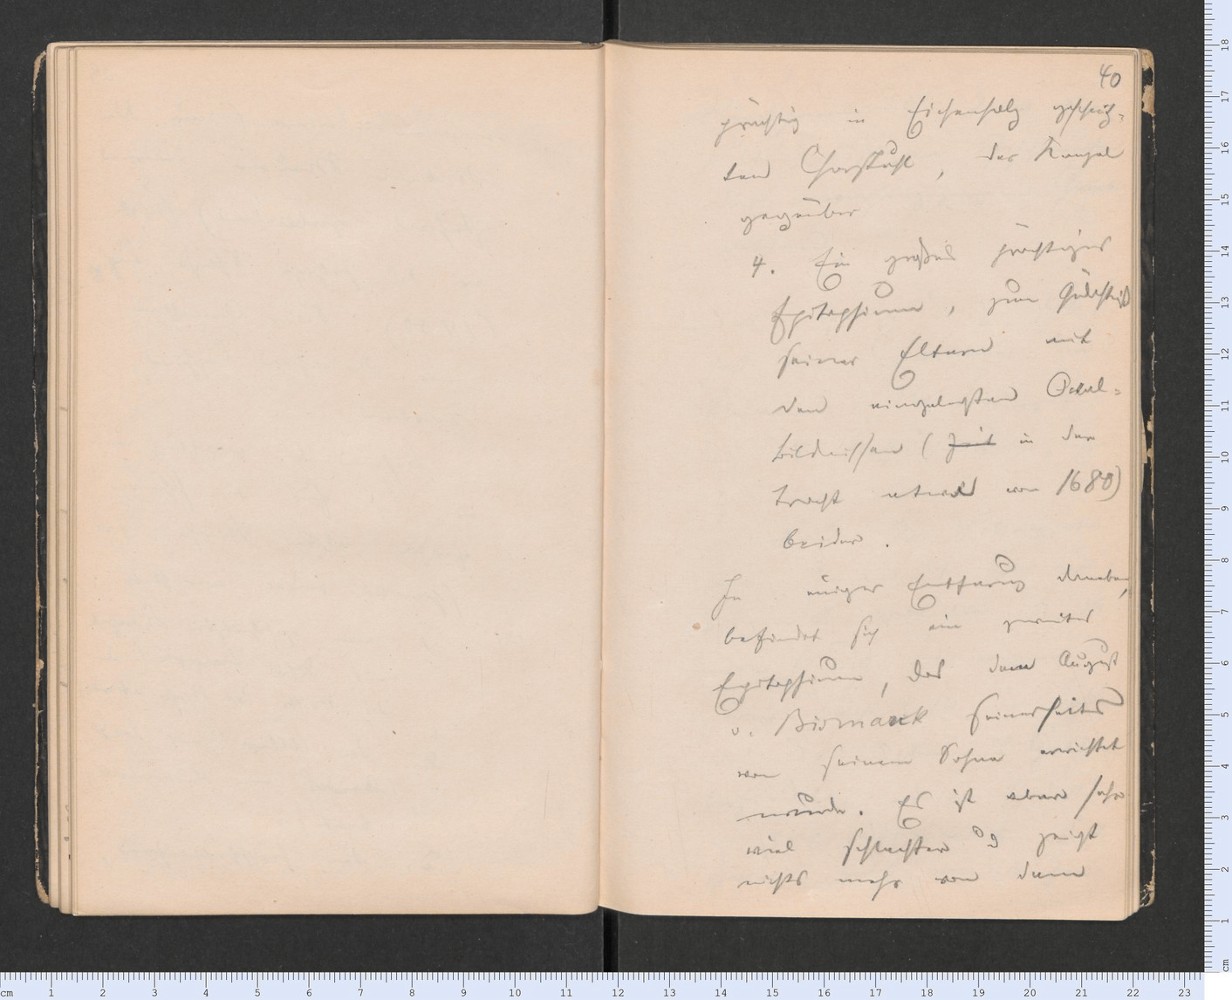 40
prächtig in Eichenholz geschnitz-
ten Chorstuhl, der Kanzel
gegenüber
4. Ein großes prächtiges
Epitaphium, zum Gedächtniß
seiner Eltern mit
den eingelegten Oval-
bildnissen (in der
Tracht etwa von 1680)
beider.
In einiger Entfernung daneben,
befindet sich ein zweites
Epitaphium, das dem August
v. Bismarck seinerseits
von seinem Sohne errichtet
wurde. Es ist aber sehr
viel schlechter u zeigt
nichts mehr von dem